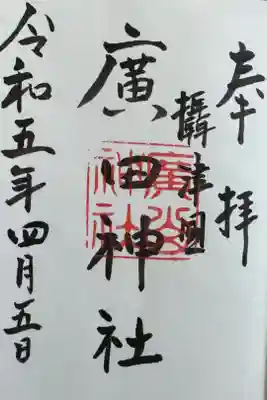 奉拝
攝津國
廣田神社
令和五年四月五日
廣田
神社